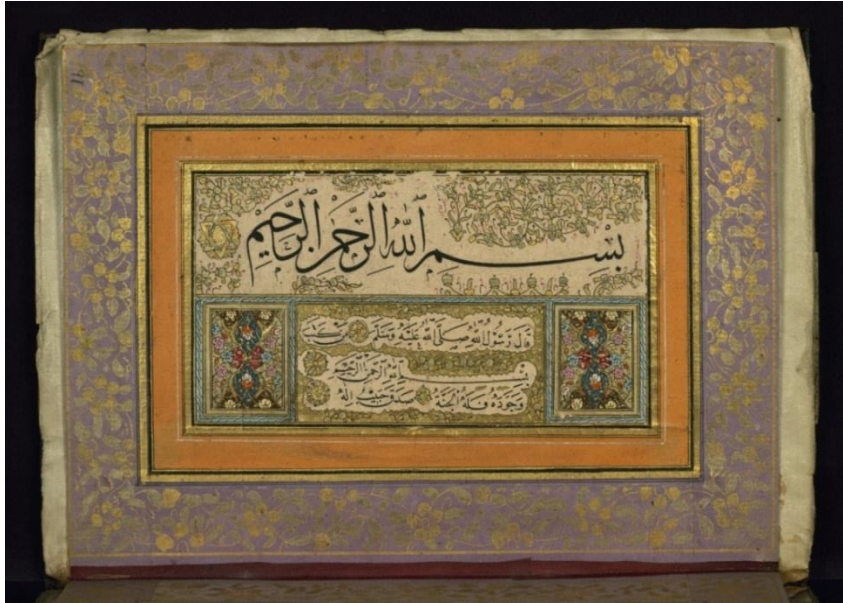 بِسْمِ اللّٰهِ الرَّحْمٰنِ الرَّحِيمِ
قَالَ رَسُولُ اللّٰهِ صَلَّى اللّٰهُ عَلَيْهِ وَسَلَّمَ مَنْ كَتَبَ
بِسْمِ اللّٰهِ الرَّحْمٰنِ الرَّحِيمِ
وَجَوَّدَهُ فَلَهُ الْجَنَّةُ صَدَقَ حَبِيبُ اللّٰهِ